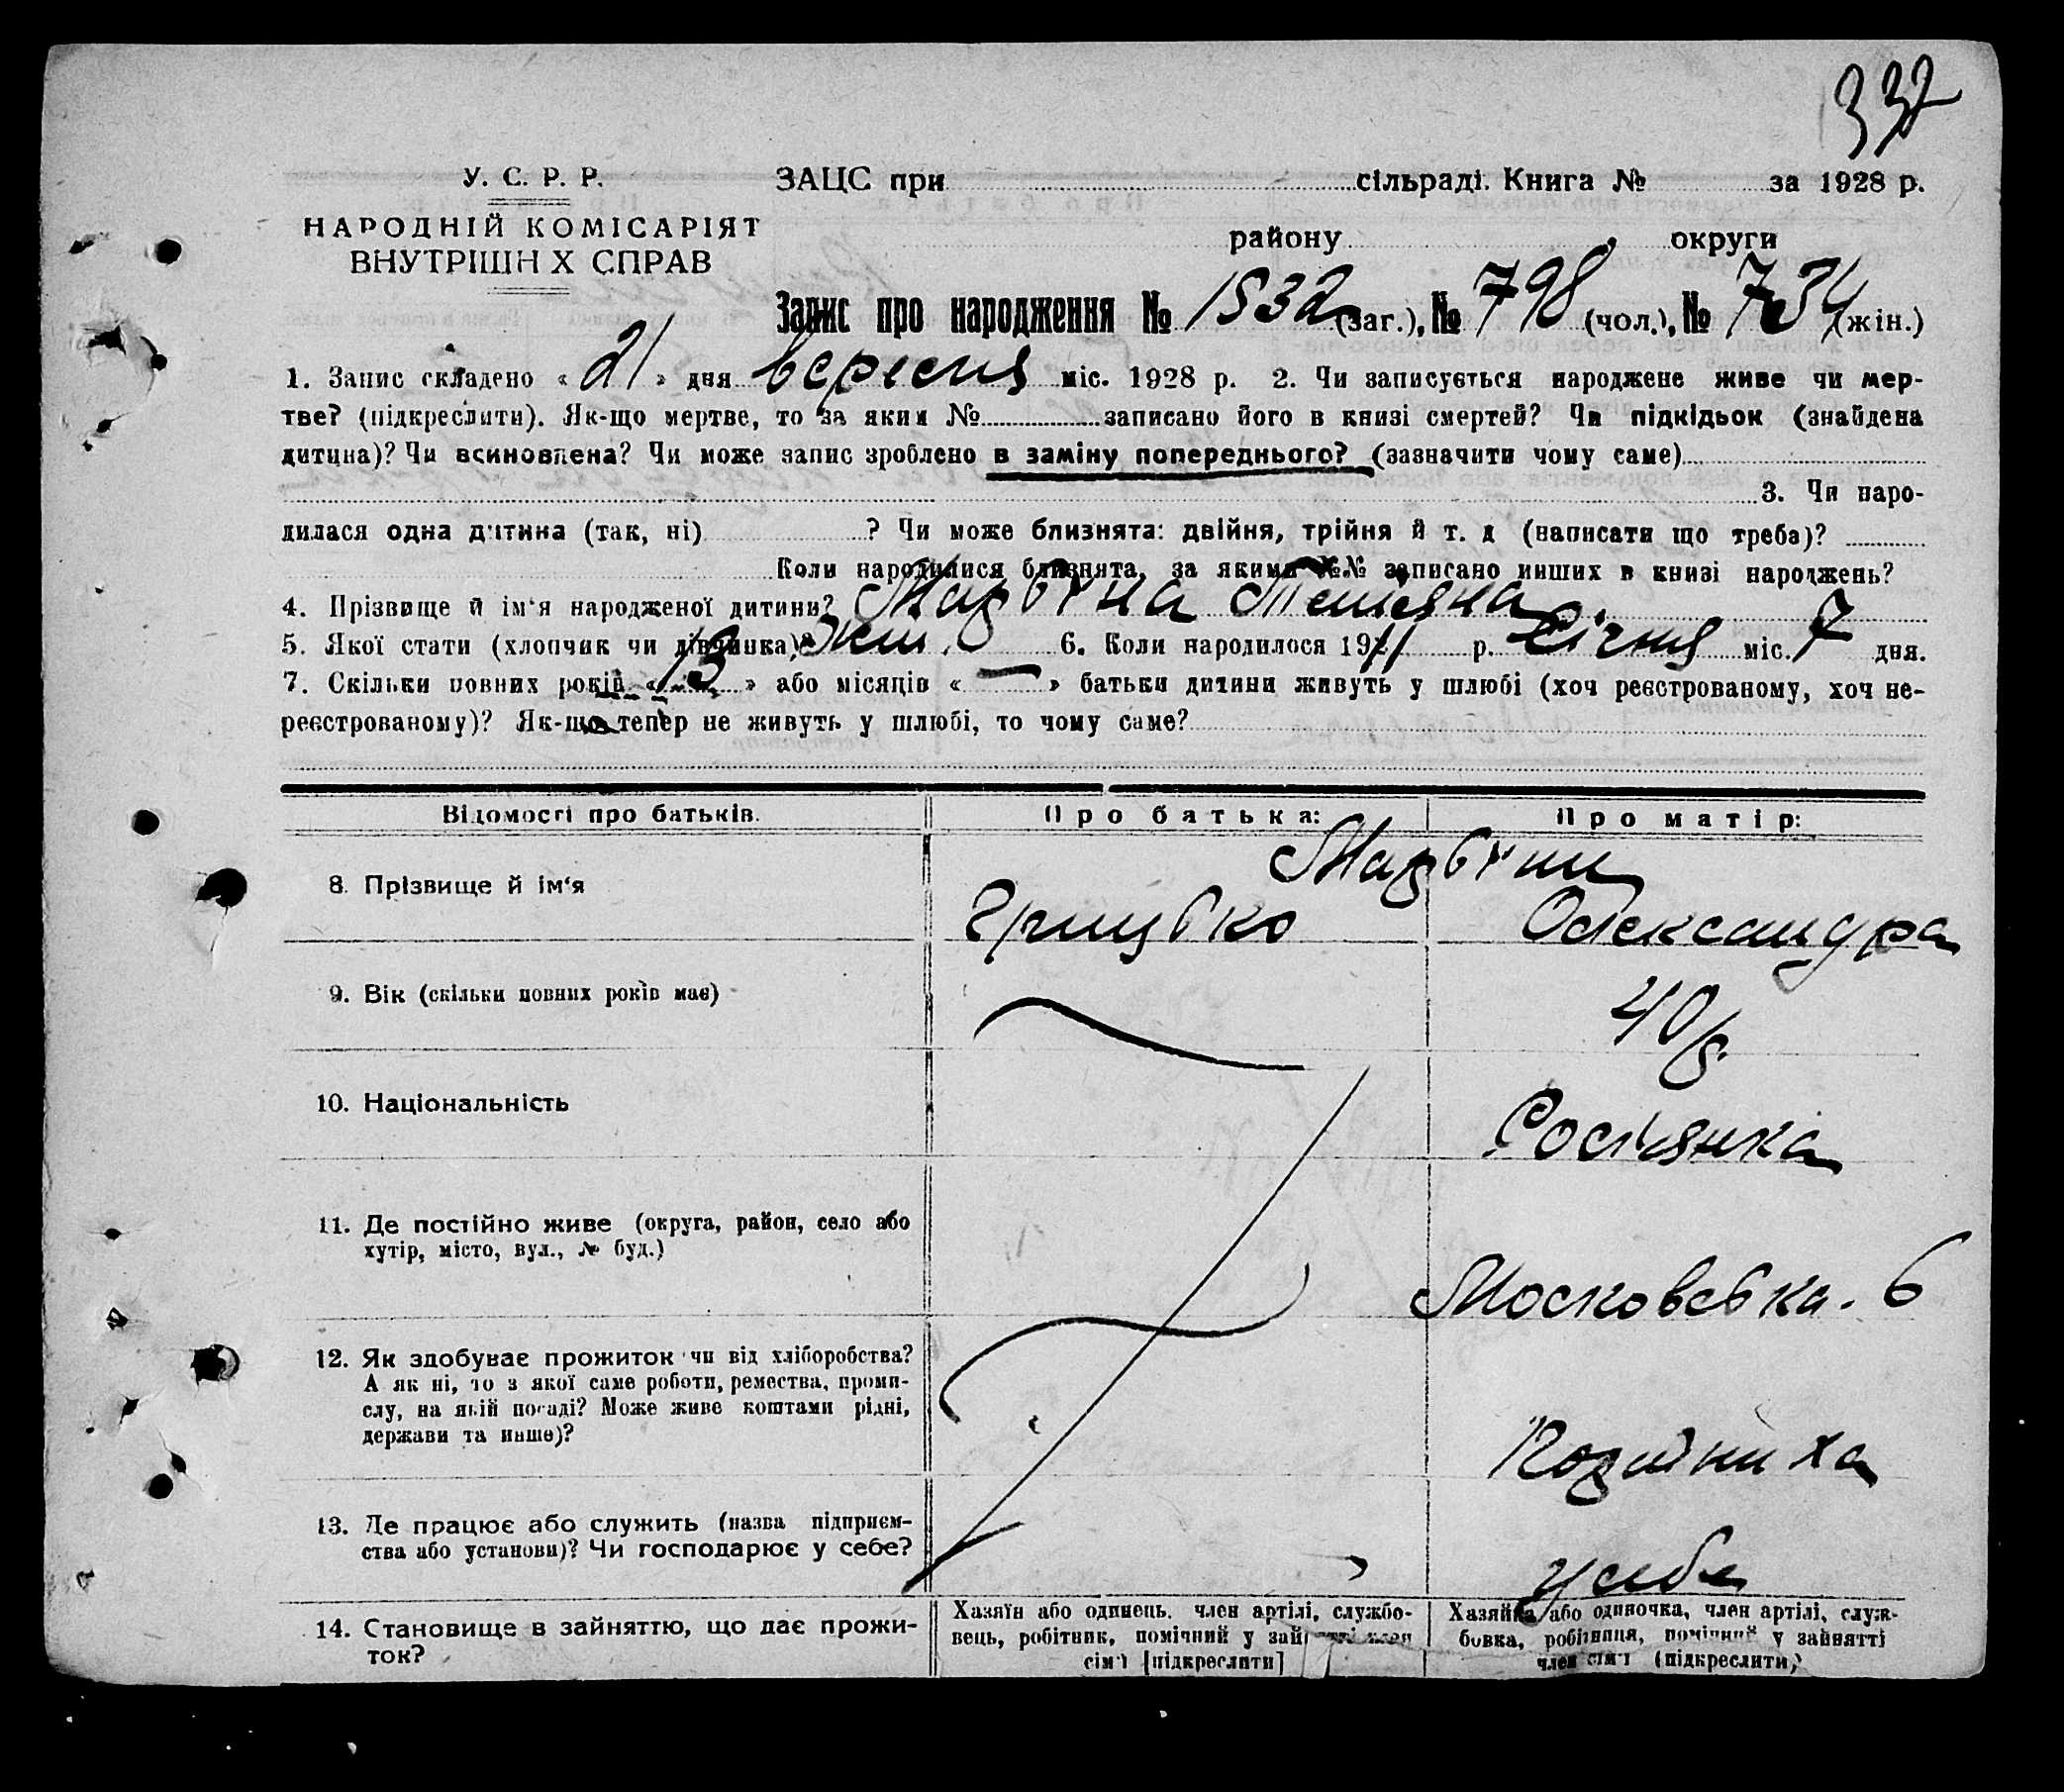 337
У. С. Р. Р.
НАРОДНІЙ КОМІСАРІЯТ
ВНУТРІШН Х СПРАВ
ЗАЦС при сільраді. Книга № за 1928 р.
району округи
Запис про народження № 1532 (заг.), № 798 (чол.), № 734 (жін.)
1. Запис складено « 21 » дня вересня міс. 1928 р. 2. Чи записується народжене живе чи мер-
тве? (підкреслити). Як-що мертве, то за яким № записано його в книзі смертей? Чи підкідьок (знайдена
дитина)? Чи всиновлена? Чи може запис зроблено в заміну попереднього? (зазначити чому саме)
3. Чи наро-
дилася одна дитина (так, ні) ? Чи може близнята: двійня, трійня й т. д (написати що треба)?
Коли народилися близнята, за якими №№ записано инших в книзі народжень?
4. Прізвище й ім'я народженої дитини?
5. Якої стати (хлопчик чи дівчинка)? жін. 6. Коли народилося 1911 р. Січня міс. 7 дня.
7. Скільки повних років « » або місяців « — » батьки дитини живуть у шлюбі (хоч реєстрованому, хоч не-
реєстрованому)? Як-що тепер не живуть у шлюбі, то чому саме?
Відомості про батьків.
Про батька:
Про матір:
8. Прізвище й ім'я
Грицько
Олександра
9. Вік (скільки повних років має)
40
10. Національність
Росіянка
11. Де постійно живе (округа, район, село або
хутір, місто, вул., № буд.)
Московська. 6
12. Як здобуває прожиток чи від хліборобства?
А як ні, то з якої саме роботи, ремества, проми-
слу, на якій посаді? Може живе коштами рідні,
держави та инше)?
13. Де працює або служить (назва підприєм-
ства або установи)? Чи господарює у себе?
у себе
14. Становище в зайняттю, що дає прожи-
ток?
Хазяїн або одинець, член артілі, службо-
вець, робітник, помічний у зайнятті член
сім'ї [підкреслити]
Хазяйка або одиночка, член артілі, служ-
бовка, робітниця, помічний у зайнятті
член сім'ї (підкреслити)